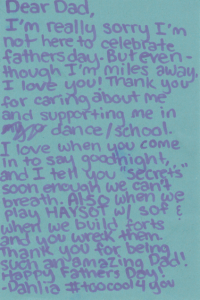 Dear Dad,
I'm really sorry I'm
not here to celebrate
fathers day. But even-
though I'm miles away,
I love you! Thank you
for caring about me
and supporting me in
my dance/school.
I love when you come
in to say goodnight,
and I tell you "secrets"
soon enough we can't
breath. Also when we
play HAYSOT w/ sof &
when we build forts
and you wreck them.
Thank you for being
such an amazing Dad!
Happy Fathers Day!
-Dahlia #toocool4you